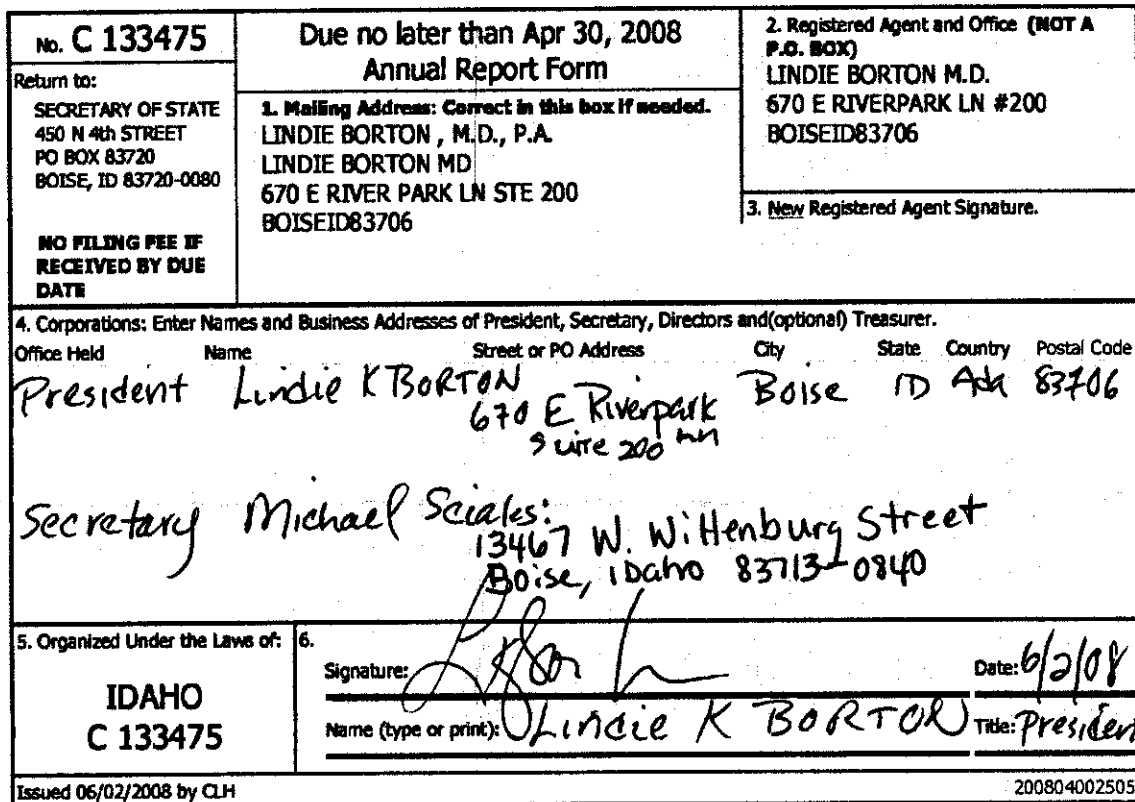 No. C 133475
Return to:
SECRETARY OF STATE
450 N 4th STREET
PO BOX 83720
BOISE, ID 83720-0080
NO FILING FEE IF
RECEIVED BY DUE
DATE
Due no later than Apr 30, 2008
Annual Report Form
1. Mailing Address: Correct in this box if needed.
LINDIE BORTON , M.D., P.A.
LINDIE BORTON MD
670 E RIVER PARK LN STE 200
BOISEID83706
2. Registered Agent and Office (NOT A
P.O. BOX)
LINDIE BORTON M.D.
670 E RIVERPARK LN #200
BOISEID83706
3. New Registered Agent Signature.
4. Corporations: Enter Names and Business Addresses of President, Secretary, Directors and(optional) Treasurer.
Office Held Name Street or PO Address City State Country Postal Code
President Lindie K BORTON 670 E Riverpark Boise ID Ada 83706
Suite 200
Secretary Michael Sciales:
13467 W. Wittenburg Street
Boise, Idaho 83713-0840
5. Organized Under the Laws of:
IDAHO
C 133475
6.
Signature: Date: 6/2/08
Name (type or print): Lindie K BORTON Title: President
Issued 06/02/2008 by CLH
200804002505